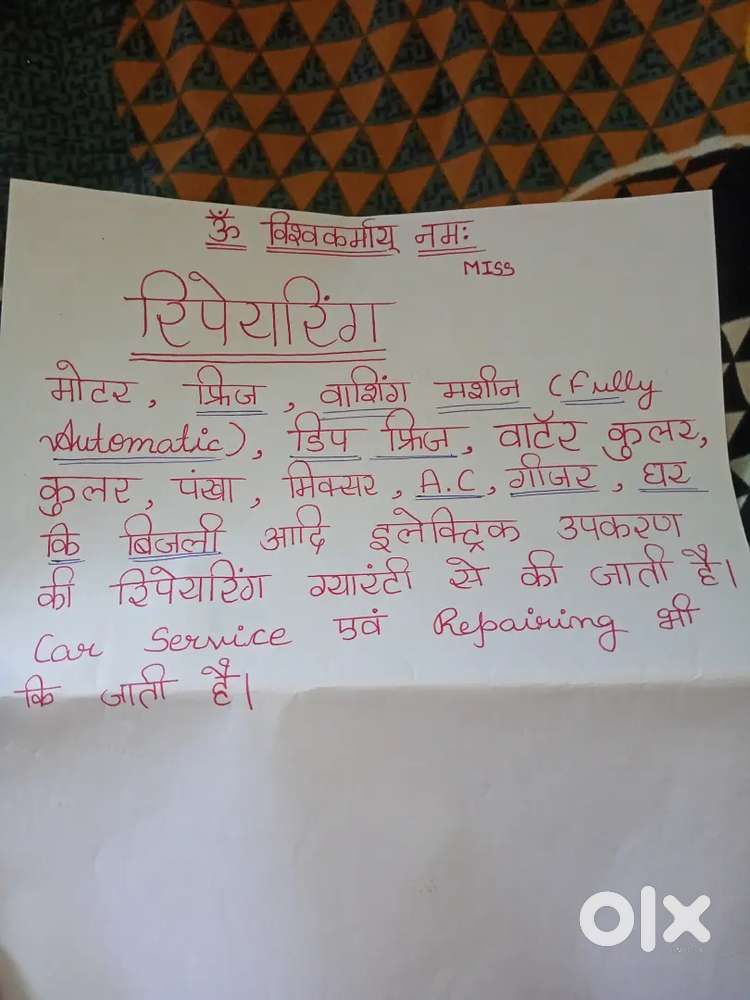 ॐ विश्वकर्माय् नमः
MISS
रिपेयरिंग
मोटर, फ्रिज, वाशिंग मशीन (Fully
Automatic), डिप फ्रिज, वाटॅर कुलर,
कुलर, पंखा, मिक्सर, A.C, गीजर, घर
कि बिजली आदि इलेक्ट्रिक उपकरण
की रिपेयरिंग ग्यारंटी से की जाती है।
Car Service एवं Repairing भी
कि जाती है।
olx